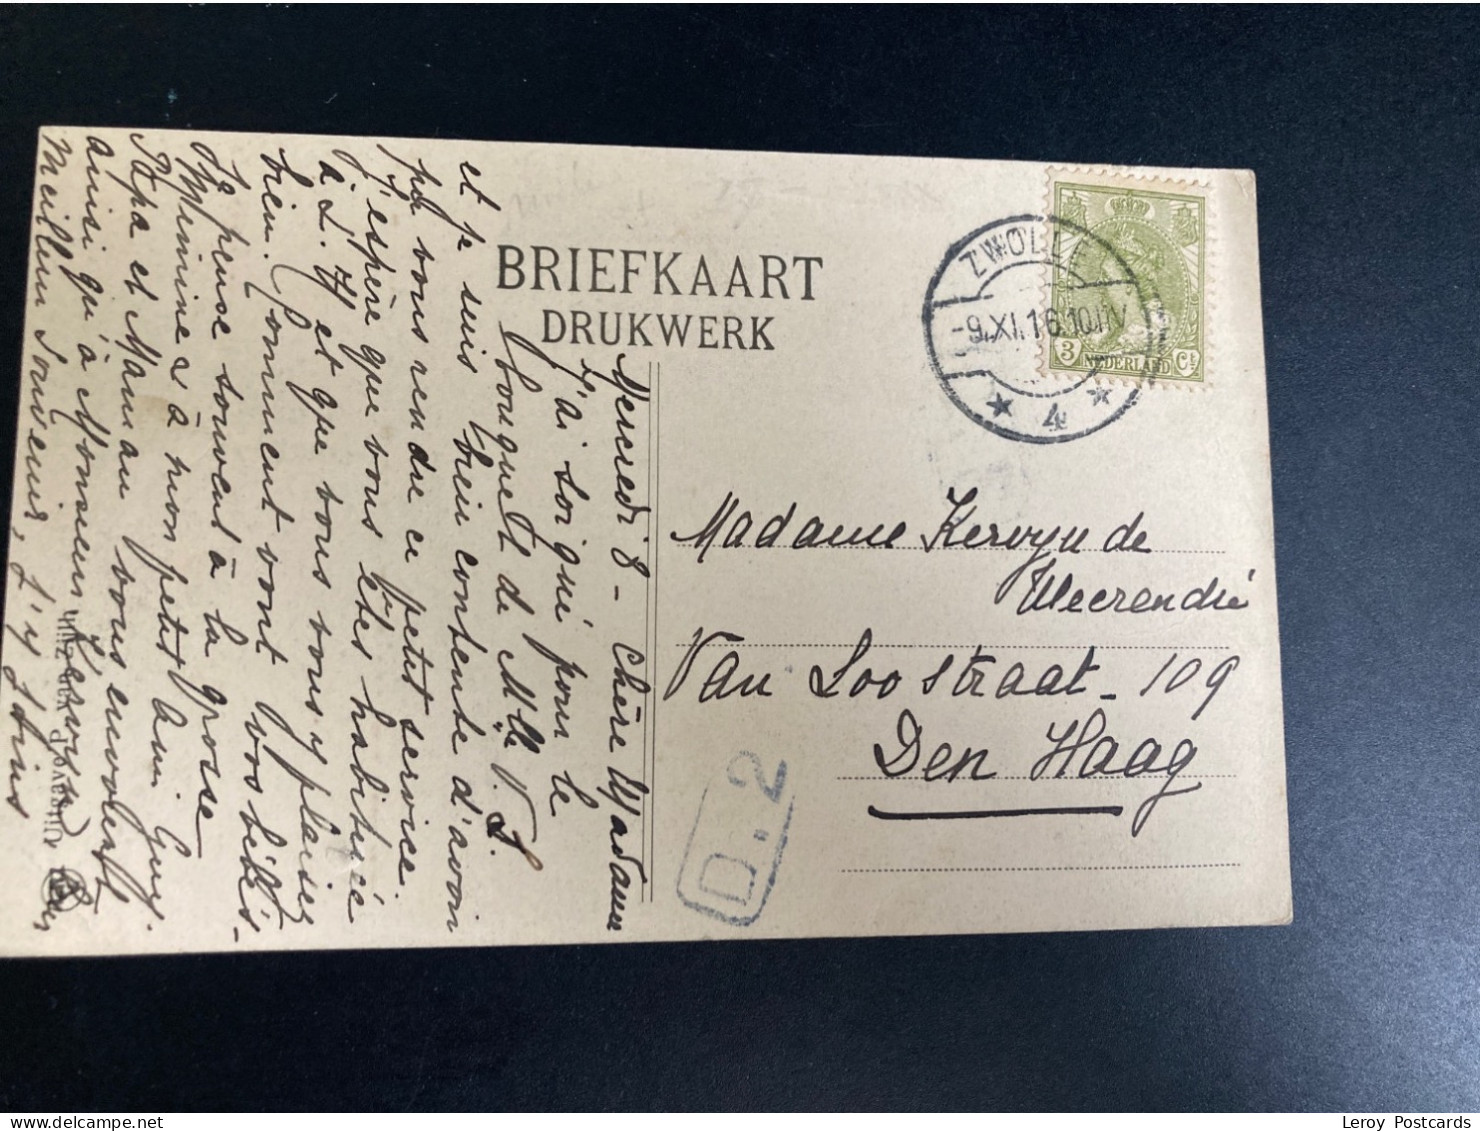 BRIEFKAART
DRUKWERK
ZWOLLE
-9.XI.16.10.11V
4
3 NEDERLAND Ct
Madame Kervyn de
Meerendré
Van Loostraat - 109
Den Haag
D. 2
Mercredi 8 - Chère Madame
J'ai soi qui pour le
bouquet de Mlle V. S.
et je suis bien contente d'avoir
pu vous rendre ce petit service.
J'espère que vous êtes habituée
à L. H et que vous vous y plaisez
bien. Comment vont vos bébés -
Je pense souvent à la grosse
Mimine & à mon petit ami Guy.
Papa et Maman vous envoient
ainsi qu'à Monsieur Kervyn leur
Meilleur Souvenir, J'y joins
Leroy Postcards